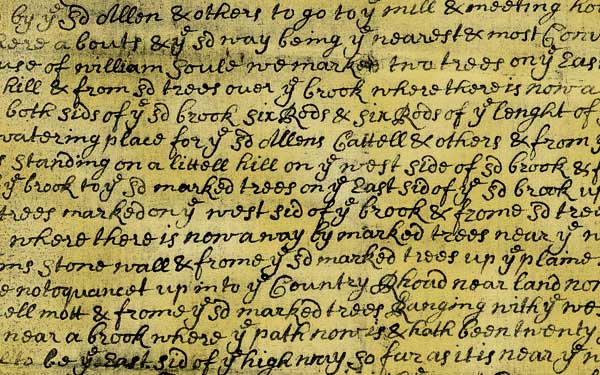 by yᵉ sd Allen & others to go to yᵉ mill & meeting hou
here abouts & yᵉ sd way being yᵉ nearest & most Conv
use of william Soule we marked two trees on yᵉ East
hill & from sd trees over yᵉ brook where there is now a
both sids of yᵉ sd brook six Rods & six Rods of yᵉ Lenght of
watering place for yᵉ sd Allens Cattell & others & from y
s standing on a littell hill on yᵉ west side of sd brook & f
yᵉ brook to yᵉ sd marked trees on yᵉ East sid of yᵉ sd brook up
trees marked on yᵉ west sid of yᵉ brook & frome sd tree
where there is now a way by marked trees near yᵉ w
ms Stone wall & frome yᵉ sd marked trees up yᵉ plame
e notoquancet up into yᵉ Country Rhoad near land now
ell mott & frome yᵉ sd marked trees Ranging with yᵉ wes
near a brook where yᵉ path now is & hath been twenty
to be yᵉ East sid of yᵉ high way so far as it is near yᵉ w